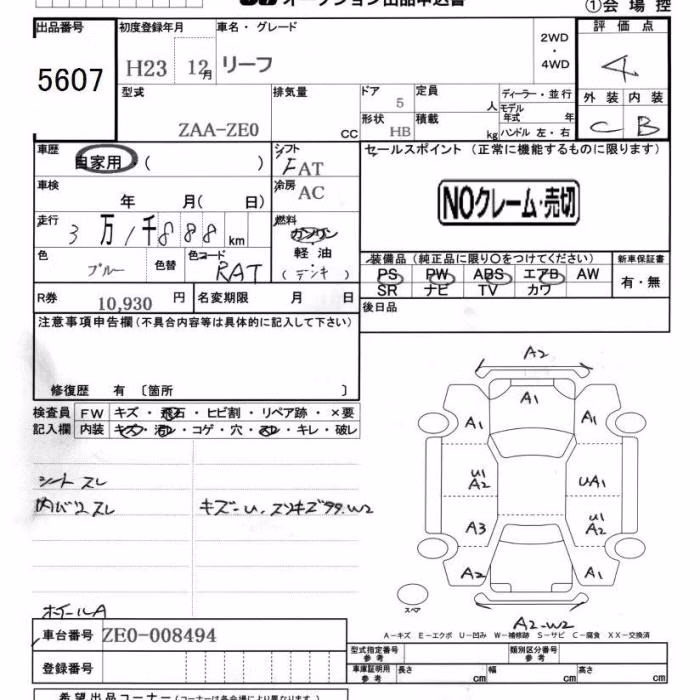 オークション出品申込書
①会場控
出品番号 初度登録年月 車名・グレード 評価点
5607 H23 12月 リーフ 2WD・4WD 4
型式 排気量 ドア 定員 ディーラー・並行 外装 内装
ZAA-ZE0 cc 5 人 モデル年式 年 C B
形状 積載
HB kg ハンドル 左・右
車歴 自家用 ( ) シフト FAT セールスポイント (正常に機能するものに限ります)
車検 年 月( 日) 冷房 AC NOクレーム・売切
走行 3万1千888km 燃料 ガソリン
軽油
(デンキ)
色 ブルー 色替 色コード RAT
装備品 (純正品に限り〇をつけてください) 新車保証書
PS PW ABS エアB AW 有・無
SR ナビ TV カワ
R券 10,930円 名変期限 月 日 後日品
注意事項申告欄 (不具合内容等は具体的に記入して下さい)
修復歴 有 〔箇所 〕
検査員 FW キズ・飛石・ヒビ割・リペア跡・×要
記入欄 内装 キズ・汚レ・コゲ・穴・スレ・キレ・破レ
シートスレ
内バリスレ キズ-U,スリキズ99.W2
ホイールA
A2
A1
A1 A1
U1 A2 UA1
A3 U1 A2
A2 A1
スペア
A2-W2
A-キズ E-エクボ U-凹み W-補修跡 S-サビ C-腐食 XX-交換済
車台番号 ZE0-008494
登録番号
型式指定番号 参考 類別区分番号 参考
車庫証明用 参考 長さ cm 幅 cm 高さ cm
希望出品コーナー (コーナーは各会場により異なります。)